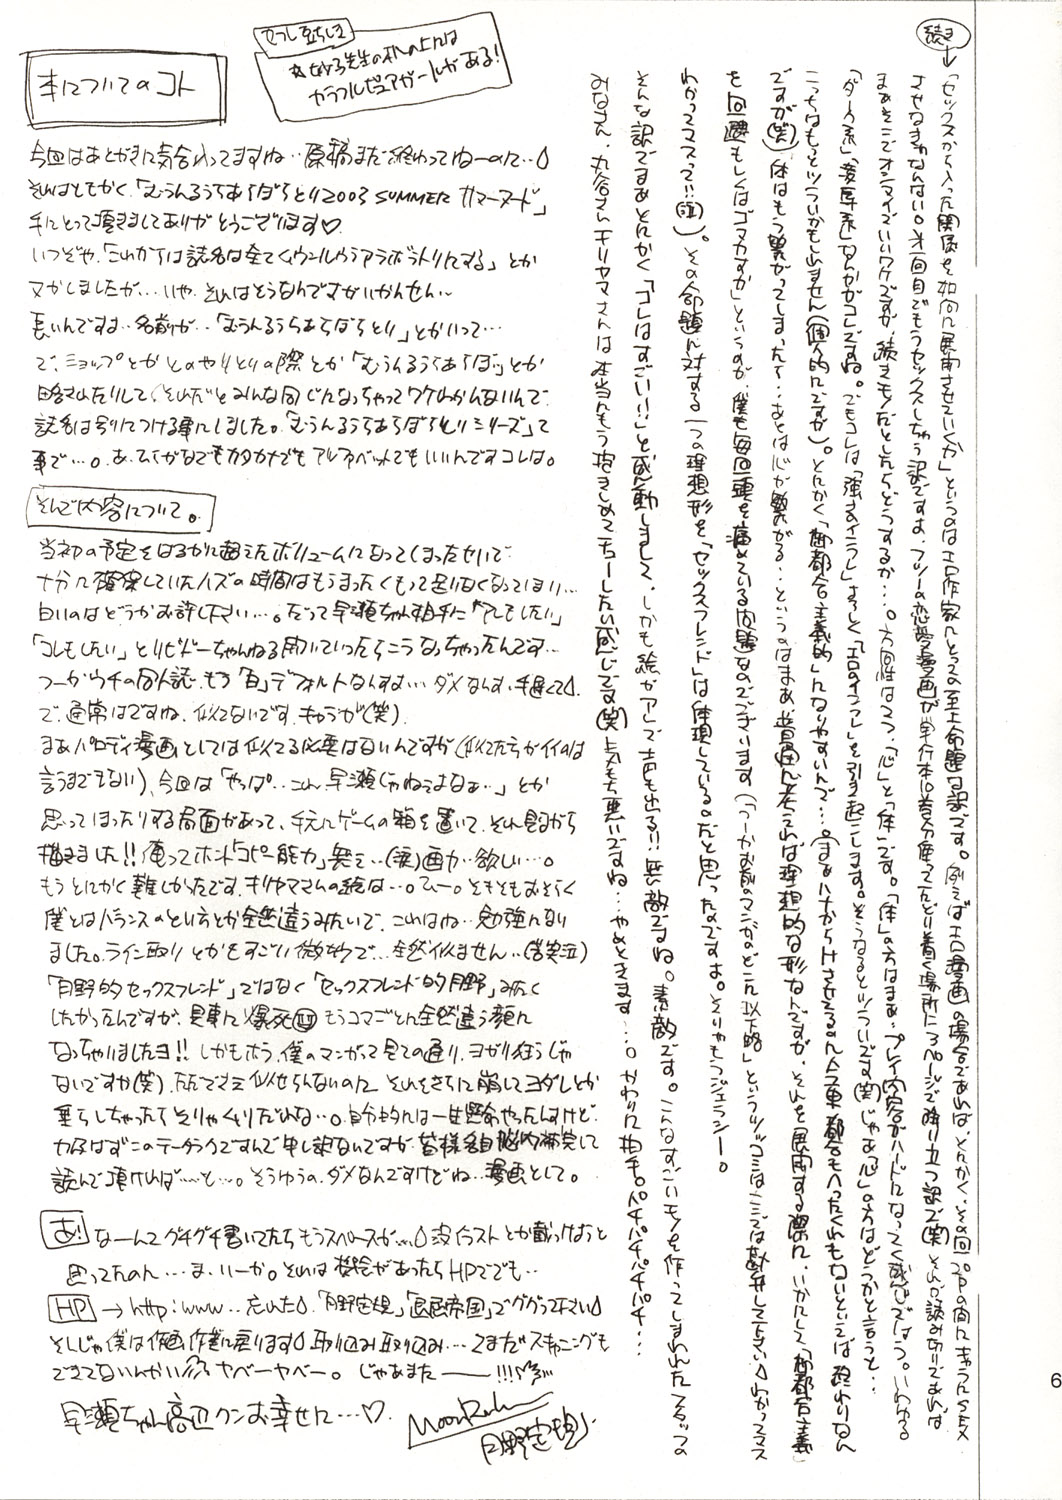 続き
↓
「セックスから入った関係を如何に展開させていくか」というのはエロ作家にとって至上命題な訳です。例えばエロ漫画の場合であれば、とにかく、その回20Pの間にキャラにSEX
させなきゃなんない。第一回目でもうセックスしちゃう訳ですよ。フツーの恋愛漫画が単行本10巻分使ってたどり着く場所に3ページで降り立つ訳で(笑)それが読み切りであれば
まぁそこでオシマイでいいワケですが、続きモノだとしたらどうするか…。方向性は2つ、「心」と「体」です。「体」の方はまぁ、プレイ内容がハードになってく感じでしょう。いわゆる
「ダーク系」「凌辱系」なんかがコレですね。でもコレは「強さのインフレ」よろしく「エロのインフレ」を引き起こします。そうなるとツライです(笑)じゃあ「心」の方はどうかと言うと…
こっちはもっとツライかもしれません(個人的にですが)。とにかく「御都合主義的」になりやすいんで…。
ですが(笑)体はもう繋がってしまったて…あとは心が繋がる…というのはまぁ、普通に考えれば理想的な形なんですが、それを展開する際に、いかにして「御都合主義」
を回避もしくはゴマかすか」というのが、僕も毎回頭を痛めている問題なのでございます(つーかお前のマンガのどこが以下略」というツッコミはここでは勘弁して下さい わかってマス
わかってマスって!!(泣))。その命題に対する一つの理想形を「セックスフレンド」は体現している。だと思ったのですよ。そりゃもうジェラシー。
そんな訳でまぁとにかく「コレはすごい!!」と感動しまして、しかも絵がアレで声も出る!!無敵ですね。素敵です。こんなすごいモノを作ってしまわれたスタッフの
みなさん、丸谷さんキリヤマさんは本当にもう抱きしめてチューしたい感じです(笑)気もち悪いですね…やめときます…。かわりに拍手。パチパチパチパチパチ…
本についてのコト
☆妙子先生の机の上には
カラフルピュアガールがある!
今回はあとがきに気合入ってますね…原稿まだ終わってねーのに…
それはともかく、「むうんるうらあらばらとり2003 SUMMER サマーヌード」
手にとって頂きましてありがとうございます♡
いつぞや、「これからは誌名は全てムウンルウラアラボラトリにする」とか
ヌかしましたが…いや、それはそうなんですがいかんせん〜
長いんですよ…名前が…「むうんるうらあらばらとり」とかいって…
で、ショップとかとのやりとりの際とか「むうんるうらあらぼ」とか
略されたりして、それだとみんな同じになっちゃってワケわかんないんで
誌名は別につける事にしました。「むうんるうらあらばらとりシリーズ」って
事で…。あ、ひらがなでもカタカナでもアルファベットでもいいんですコレは。
そんで内容について。
当初の予定をはるかに超えたボリュームになってしまったせいで
十分に確保していたハズの時間はもうまったくもって足りなくなってしまい…
白いのはどうかお許し下さい…。だって早瀬ちゃん相手に「アレもしたい」
「コレもしたい」とリビドーちゃんねる開いていったらこうなっちゃったんです…
つーかウチの同人誌、もう「白」デフォルトなんすよ…ダメなんす、手遅くて
で、通常はですね、似てないです、キャラが(笑)
まぁパロディ漫画としては似てる必要はないんですが(似てた方がイイのは
言うまでもない)、今回は「やっぱ…こん、早瀬じゃねぇよなぁ…」とか
思ってしまったりする局面があって、手元にゲームの箱を置いて、それ見ながら
描きました!!俺ってホント「コピー能力」無え…(涙)画力…欲しい…。
もうとにかく難しかったです、キリヤマさんの絵は…。そもそもおそらく
僕とはバランスのとり方とか全然違うみたいで、これはね…勉強になり
ました。ライン取りとかもすごい微妙で…全然似ません…(苦笑泣)
「月野的セックスフレンド」ではなく「セックスフレンド的月野」みたく
したかったんですが、見事に爆死(泣)もうコマごとに全然違う顔に
なっちゃいましたヨ!!しかもホラ、僕のマンガって見ての通り、ヨガり狂うじゃ
ないですか(笑)、ただでさえ似せらんないのに、それをさらに崩してヨダレとか
垂らしちゃったらそりゃムリだわな…。自分的には一生懸命やったんすけど、
力及ばずこのテータラクですんで申し訳ないですが、皆様各自脳内補完して
読んで頂ければ……と…。そうゆうの、ダメなんですけどね…漫画として。
あ! なーんてグチグチ書いてたらもうスペースが… 没イラストとか載っけようと
思ってたのに…ま、いーか。それは機会があったらHPででも…
HP → http:www…忘れた 「月野定規」「退屈帝国」でググって下さい
そんじゃ僕は作画作業に戻ります 取り込み取り込み…てまだスキャニングも
できてないんかい ヤベーヤベー。じゃあまた――!!!
早瀬ちゃん高辺クンお幸せに…♡。
MoonRuler
月野定規
6